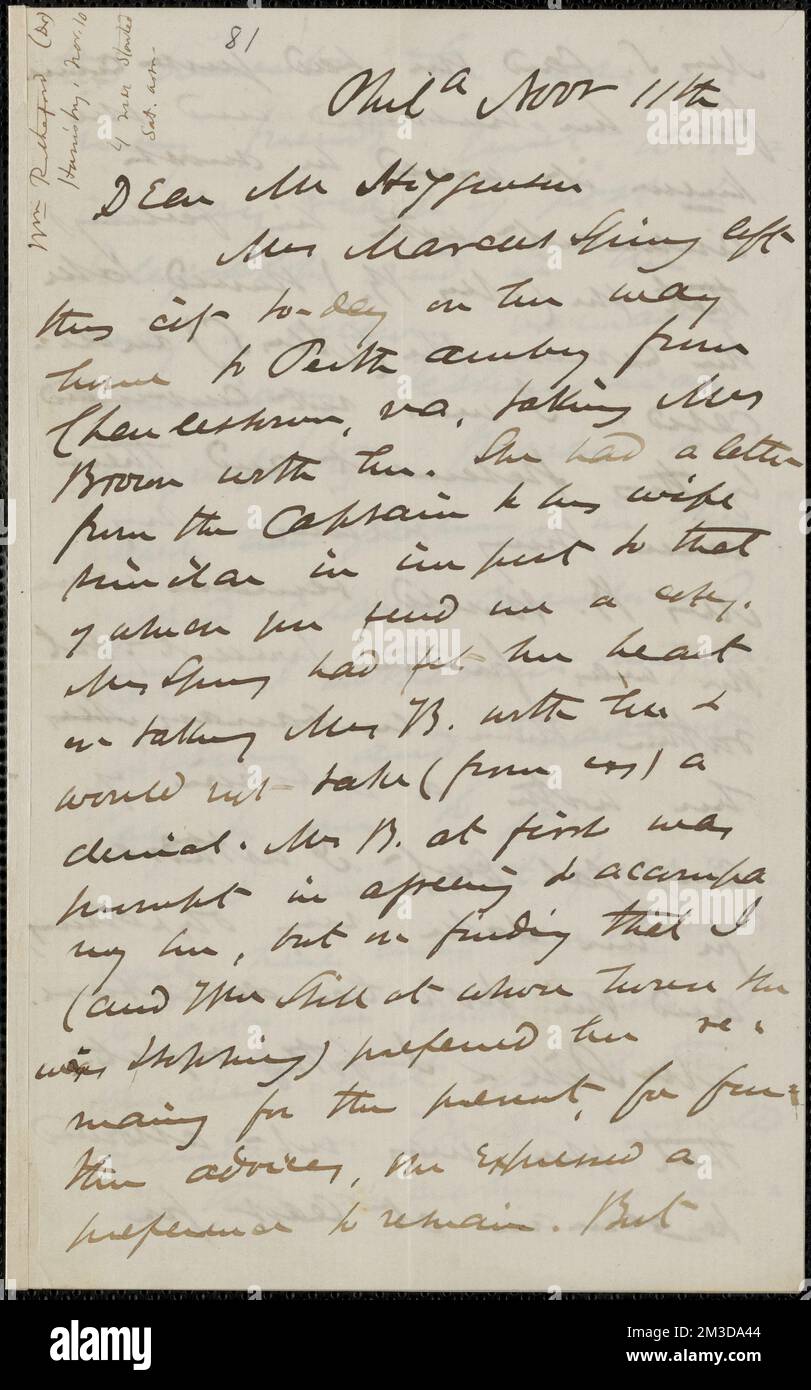 81
Wm Rutherford (Dr)
Harrisbg, Nov. 10
4 men started
Sat. a.m.
Phila Novr 11th
Dear Mr Higginson
Mrs Marcus Spring left
this city to-day on her way
home to Perth Amboy from
Charlestown, va, taking Mrs
Brown with her. She had a letter
from the Captain to his wife
similar in import to that
of which you send me a copy.
Mrs Spring had set her heart
on taking Mrs B. with her &
would not take (from us) a
denial. Mrs B. at first was
prompt in agreeing to accompa
ny her, but on finding that I
(and Wm Still at whose house she
was stopping) preferred her re-
maining for the present, for fur=
ther advices, she expressed a
preference to remain. But
alamy
2M3DA44
www.alamy.com